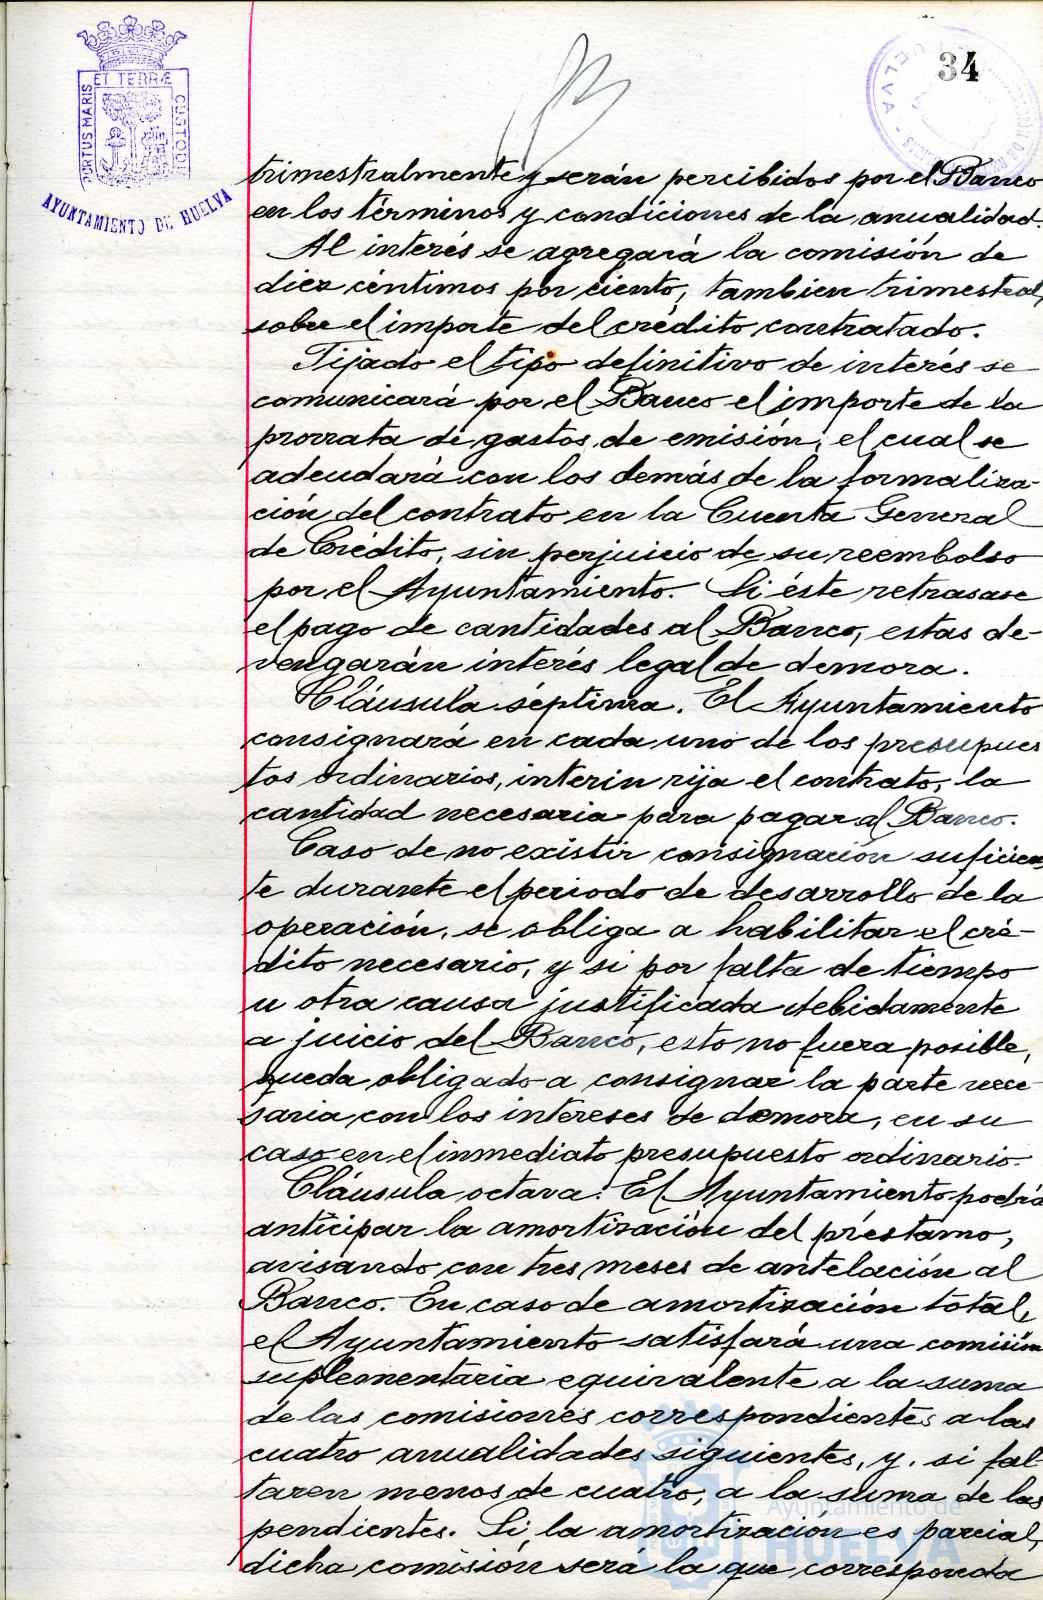 34
ET TERRÆ
PORTUS MARIS
CUSTODI
AYUNTAMIENTO DE HUELVA
HUELVA
trimestralmente y serán percibidos por el Banco
en los términos y condiciones de la anualidad.
Al interés se agregará la comisión de
diez céntimos por ciento, tambien trimestral,
sobre el importe del crédito contratado.
Fijado el tipo definitivo de interés se
comunicará por el Banco el importe de la
prorrata de gastos de emisión, el cual se
adeudará con los demás de la formaliza-
ción del contrato en la Cuenta General
de Crédito, sin perjuicio de su reembolso
por el Ayuntamiento. Si éste retrasase
el pago de cantidades al Banco, estas de-
vengarán interés legal de demora.
Cláusula séptima. El Ayuntamiento
consignará en cada uno de los presupues
tos ordinarios, interin rija el contrato, la
cantidad necesaria para pagar al Banco.
Caso de no existir consignación suficien
te durante el periodo de desarrollo de la
operación, se obliga a habilitar el cré-
dito necesario, y si por falta de tiempo
u otra causa justificada debidamente
a juicio del Banco, esto no fuera posible,
queda obligado a consignar la parte nece
saria con los intereses de demora, en su
caso en el inmediato presupuesto ordinario.
Cláusula octava: El Ayuntamiento podrá
anticipar la amortización del préstamo,
avisando con tres meses de antelación al
Banco. En caso de amortización total,
el Ayuntamiento satisfará una comisión
suplementaria equivalente a la suma
de las comisiones correspondientes a las
cuatro anualidades siguientes, y, si fal-
taren menos de cuatro, a la suma de las
pendientes. Si la amortización es parcial,
dicha comisión será la que corresponda
Ayuntamiento de
HUELVA